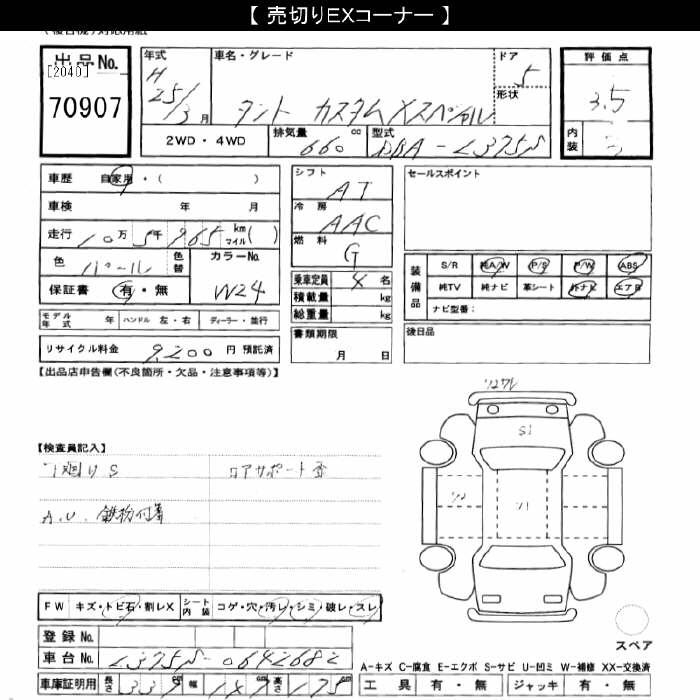 【 売切りEXコーナー 】
出品No.
[2040]
70907
年式
H
25/3月
車名・グレード
タント カスタムXスペシャル
ドア
5
形状
評価点
3.5
内装
3
2WD・4WD
排気量 660 cc
型式 DBA-L375S
車歴 自家用・( )
車検 年 月
走行 10万5千965 km マイル( )
色 パール
色替
カラーNo.
W24
保証書 有・無
モデル年式 年 ハンドル 左・右 ディーラー・並行
リサイクル料金 9,200 円 預託済
シフト
AT
冷房
AAC
燃料
G
乗車定員 4 名
積載量 kg
総重量 kg
書類期限
月 日
セールスポイント
装備品
S/R 純A/W P/S P/W ABS
純TV 純ナビ 革シート 外ナビ エアB
ナビ型番：
後日品
【出品店申告欄(不良箇所・欠品・注意事項等)】
【検査員記入】
下廻りS
コアサポート歪
A.U. 鉄粉付着
FW キズ・トビ石・割レX
シート内装 コゲ・穴・汚レ・シミ・破レ・スレ
登録No.
車台No. L375S-0642682
車庫証明用 長さ 339 cm 幅 147 cm 高さ 175 cm
S1
スペア
A-キズ C-腐食 E-エクボ S-サビ U-凹ミ W-補修 XX-交換済
工具 有・無 ジャッキ 有・無